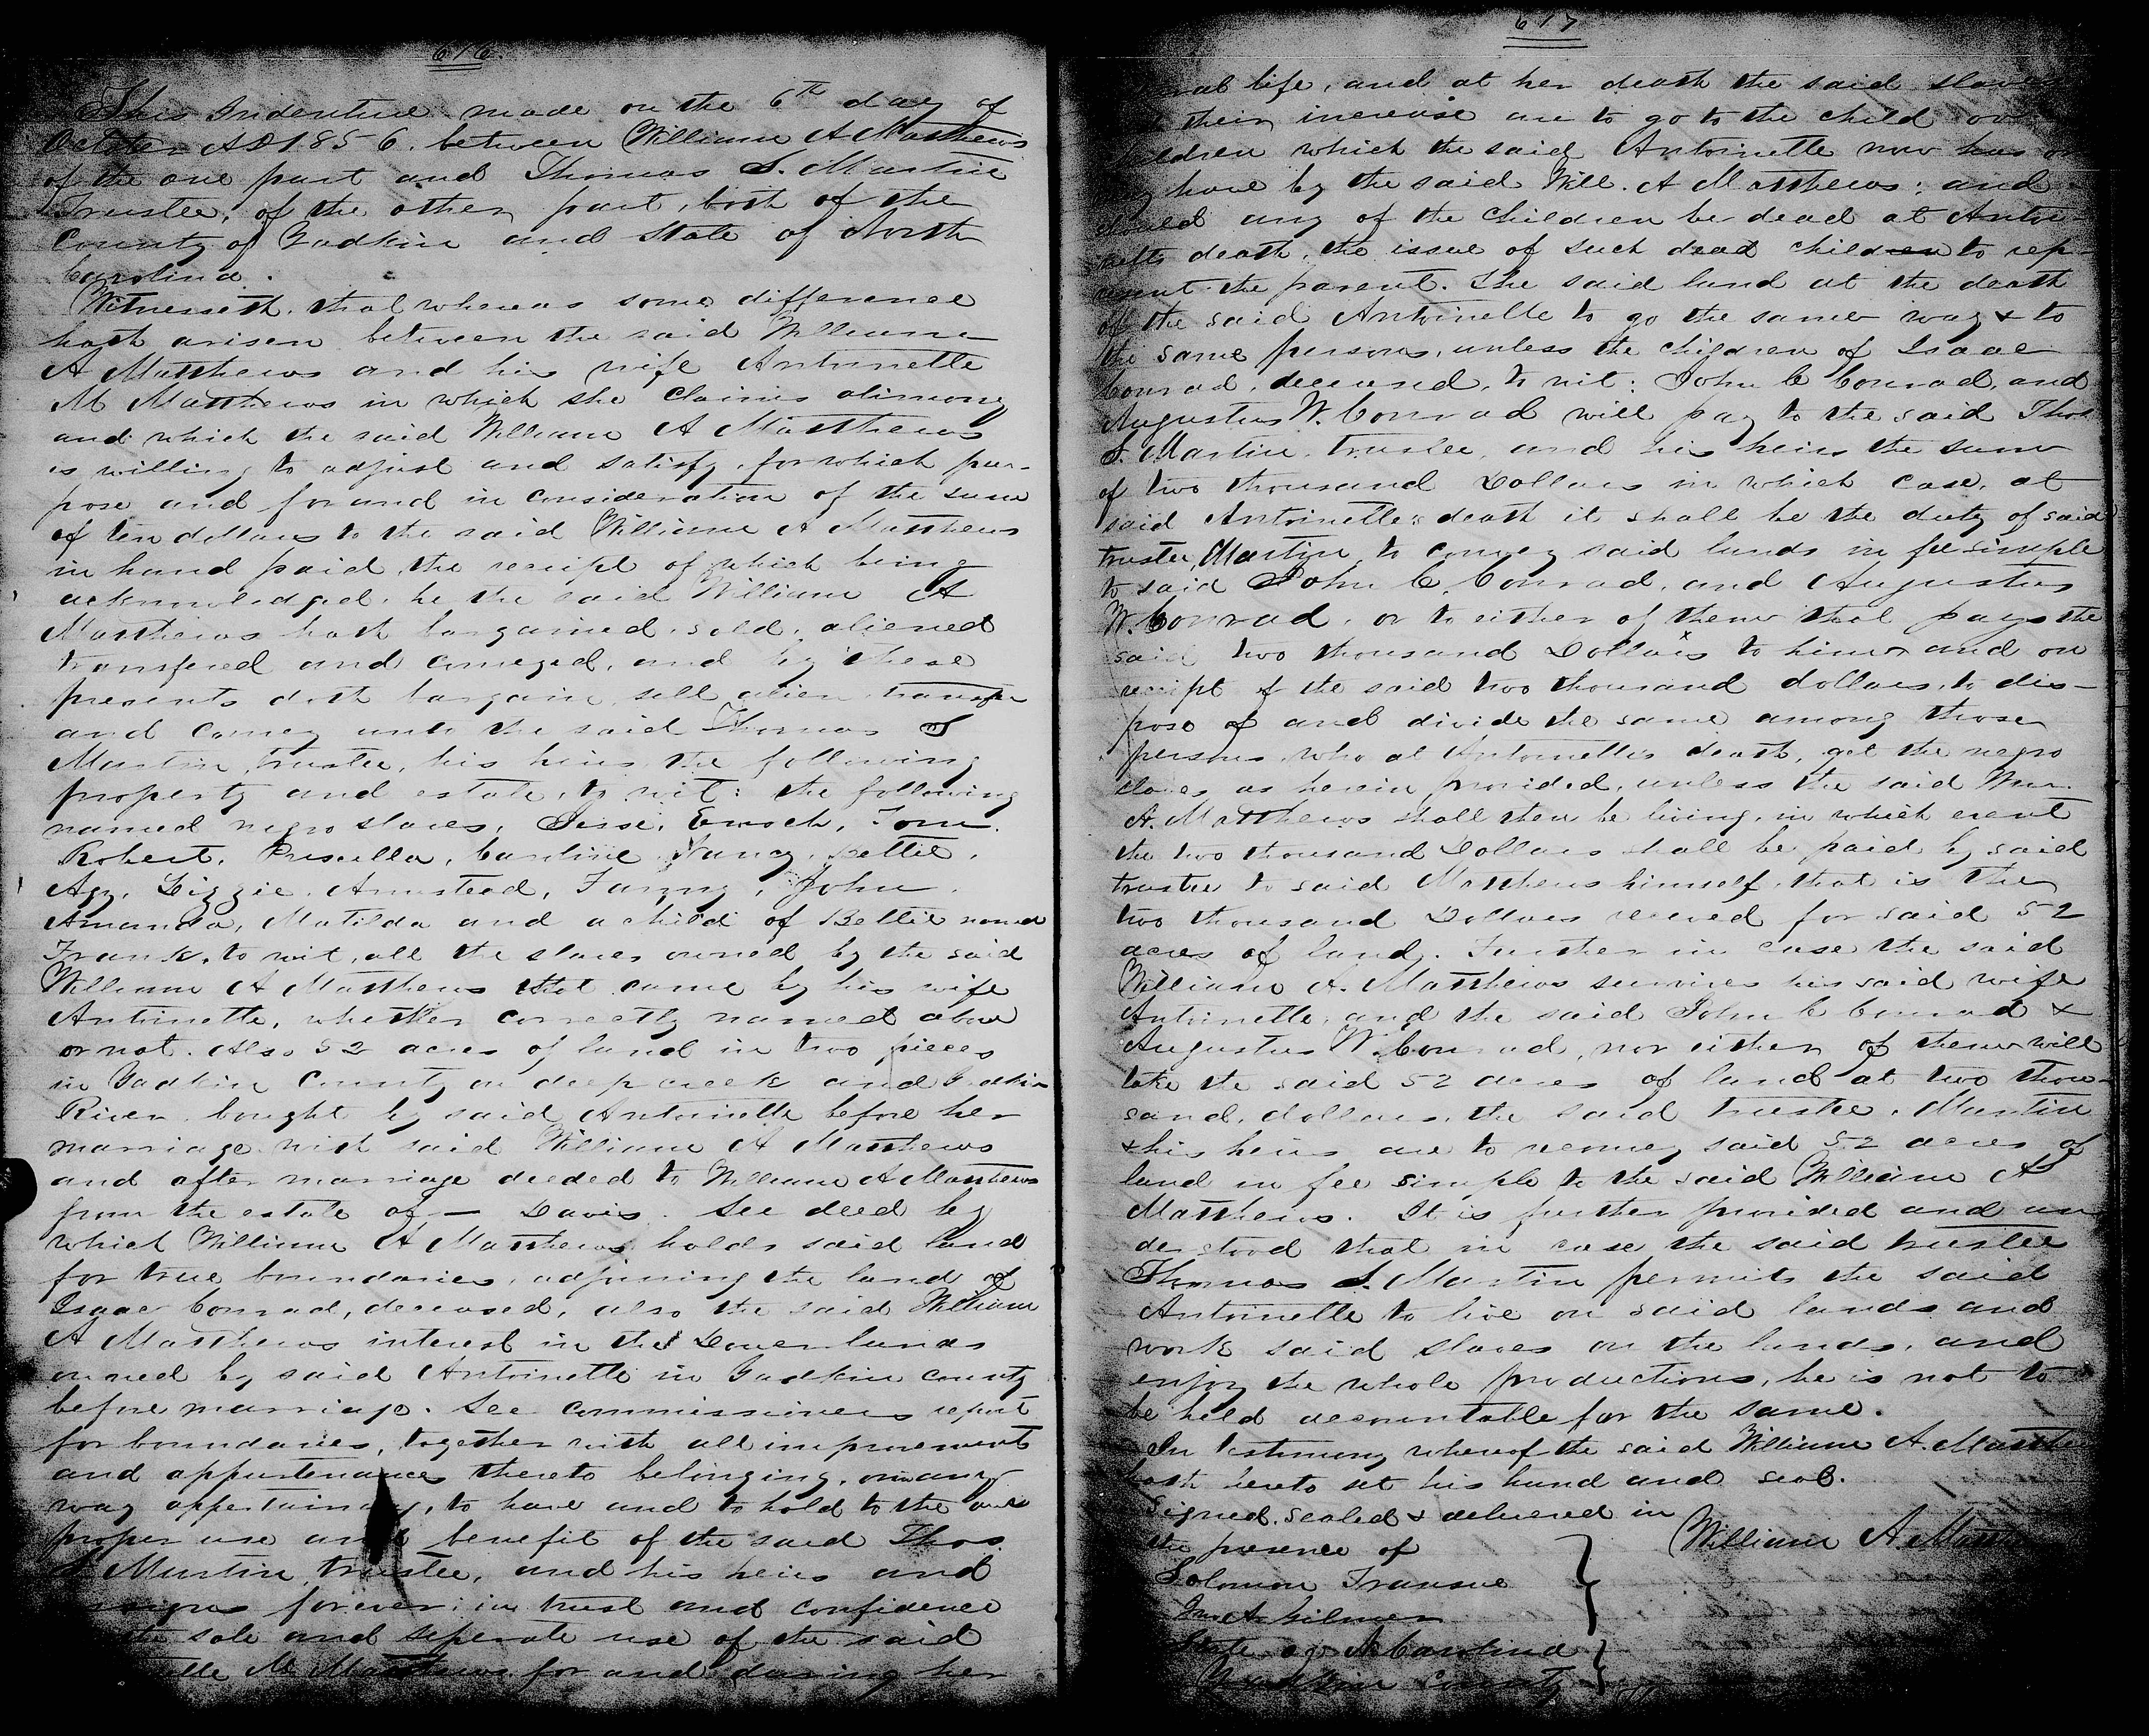 616.
This Indenture made on the 6th day of
October AD 1856. between William A Matthews
of the one part and Thomas S. Martin
Trustee, of the other part, both of the
County of Yadkin and State of North
Carolina.
Witnesseth, that whereas some difference
hath arisen between the said William
A Matthews and his wife Antoinette
M Matthews in which she claims alimony
and which the said William A Matthews
is willing to adjust and satisfy, for which pur-
pose and for and in consideration of the sum
of ten dollars to the said William A Matthews
in hand paid, the receipt of which being
acknowledged, he the said William A
Matthews hath bargained, sold, aliened
transfered and conveyed, and by these
presents doth bargain, sell alien transfer
and convey unto the said Thomas S
Martin, trustee, his heirs the following
property and estate, to wit: the following
named negro slaves, Jesse, Enoch, Tom.
Robert, Priscilla, Caroline Nancy, Bettie,
Agy, Lizzie, Armstead, Fanny, John.
Amanda, Matilda and a child of Bettie named
Frank, to wit, all the slaves owned by the said
William A Matthews that came by his wife
Antoinette, whether correctly named above
or not. Also 52 acres of land in two pieces
in Yadkin County on deep creek and Yadkin
River bought by said Antoinette before her
marriage with said William A Matthews
and after marriage deeded to William A Matthews
from the estate of — Davis. See deed by
which William A Matthews holds said land
for true boundaries, adjoining the land of
Isaac Conrad, deceased, also the said William
A Matthews interest in the Dower lands
owned by said Antoinette in Yadkin county
before marriage. See commissioners report
for boundaries, together with all improvements
and appurtenances thereto belonging, or in any
way appertaining, to have and to hold to the only
proper use and benefit of the said Thos.
S Martin, trustee, and his heirs and
assigns forever: in trust and confidence
the sole and seperate use of the said
M Matthews for and during her
617
life, and at her death the said slaves
their increase are to go to the child or
children which the said Antoinette now has or
may have by the said Will. A Matthews: and
should any of the children be dead at Antoi-
netts death, the issue of such dead children to rep-
resent the parent. The said land at the death
of the said Antoinette to go the same way & to
the same persons, unless the children of Isaac
Conrad, deceased, to wit: John C Conrad, and
Augustus W. Conrad will pay to the said Thos.
S. Martin, trustee, and his heirs the sum
of two thousand Dollars in which case, at
said Antoinettes death it shall be the duty of said
trustee, Martin to convey said lands in fee simple
to said John C. Conrad, and Augustus
W. Conrad, or to either of them that pays the
said two thousand Dollars to him and on
receipt of the said two thousand dollars, to dis-
pose of and divide the same among those
persons who at Antoinettes death, get the negro
slaves as herein provided, unless the said Wm.
A. Matthews shall then be living, in which event
the two thousand Dollars shall be paid by said
trustee to said Matthews himself, that is the
two thousand Dollars received for said 52
acres of land. Further in case the said
William A. Matthews survives his said wife
Antoinette, and the said John C Conrad &
Augustus W. Conrad, nor either of them will
take the said 52 acres of land at two thou-
sand, dollars, the said trustee, Martin
& his heirs are to reconvey said 52 acres of
land in fee simple to the said William A
Matthews. It is further provided and un
derstood that in case the said trustee
Thomas S. Martin permits the said
Antoinette to live on said lands and
work said slaves on the lands, and
enjoy the whole productions, he is not to
be held accountable for the same.
In testimony whereof the said William A. Matthews
hath hereto set his hand and seal.
Signed, sealed & delivered in
the presence of
William A Matthews
Solomon Transue
Jno A Gilmer
State of N Carolina
Yadkin County